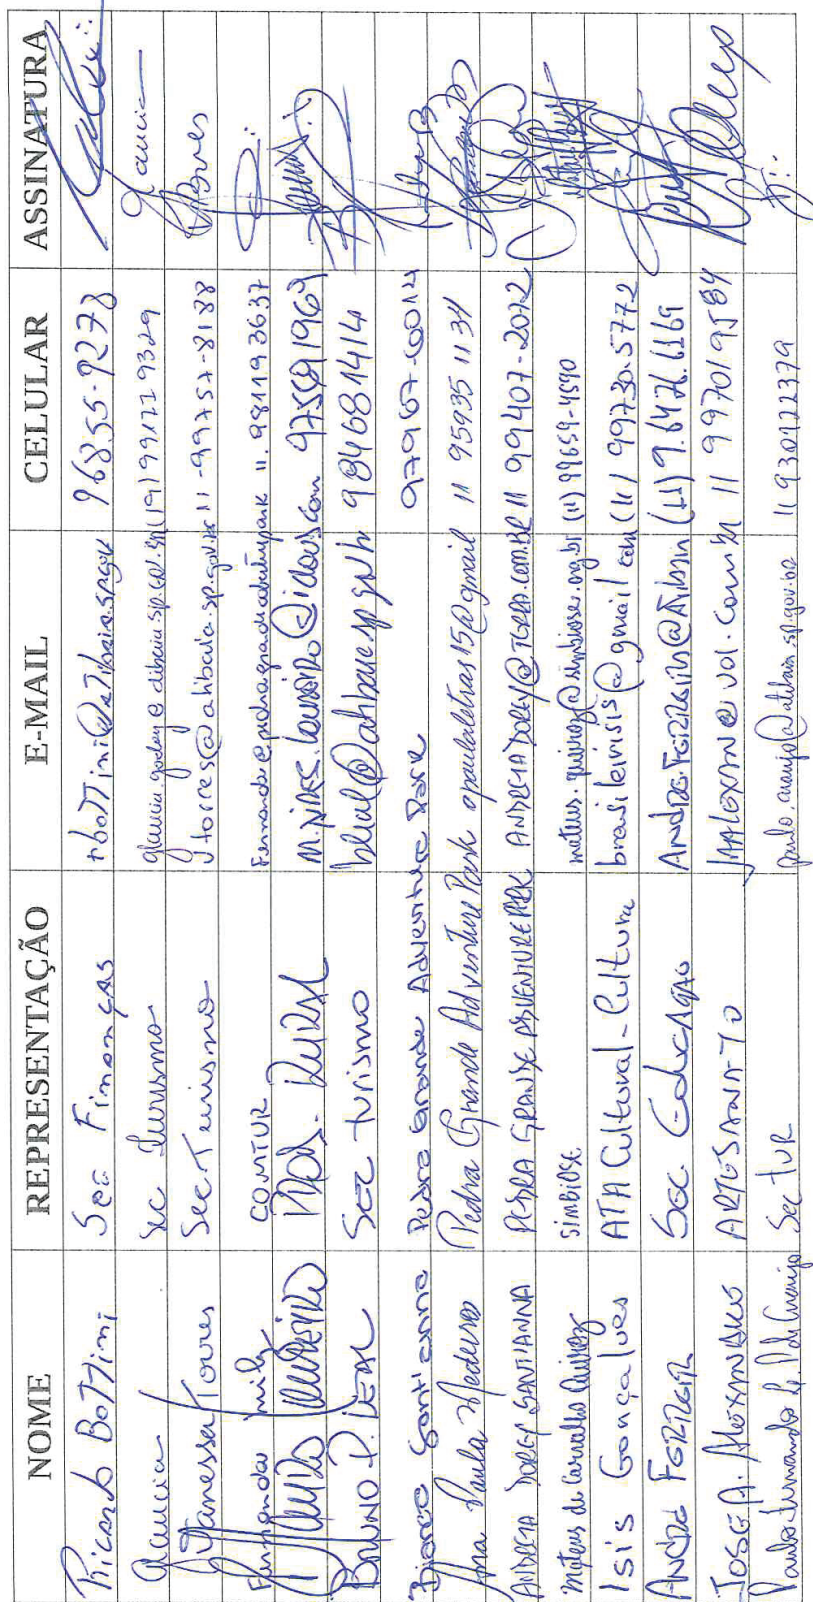 NOME REPRESENTAÇÃO E-MAIL CELULAR ASSINATURA
Ricardo Bottini Sec Finanças rbottini@atibaia.sp.gov 96855-9278
Glaucia Sec Turismo glaucia.godoy@atibaia.sp.gov.br (19) 991229329 Glaucia
Vanessa Torres Sec Turismo vtorres@atibaia.sp.gov.br 11-99757-8188
Fernanda COMTUR Fernanda@pedragrandeadventurepark 11. 981193637
Loureiro Prod. Rural M.NIRES.loureiro@icloud.com 975691969
BRUNO P. LEAL SEC turismo bleal@atibaia.sp.gov.br 984681414
Bianca Sant'anna Pedra Grande Adventure Park 97967-6014
Ana Paula Medeiros Pedra Grande Adventure Park apaulaletras15@gmail 11 95935 1134
ANDREIA DOREY SANTIANNA PEDRA GRANDE ADVENTURE PARK ANDREIADOREY@TERRA.COM.BR 11 99407-2072
Mateus de Carvalho Quiroz SIMBIOSE mateus.quiroz@simbiose.org.br (11) 99659-4590
Isis Gonçalves ATA Cultural - Cultura brasileirisis@gmail.com (11) 99730.5772
ANDRE FERREIRA SEC. Educação (11) 9.6476.6169
JOSE A. Alexandre ARTESANATO JAALEXAN@UOL.COM.BR 11 997019584
Paulo Fernando de Araujo Sec TUR paulo.araujo@atibaia.sp.gov.br 11930122379